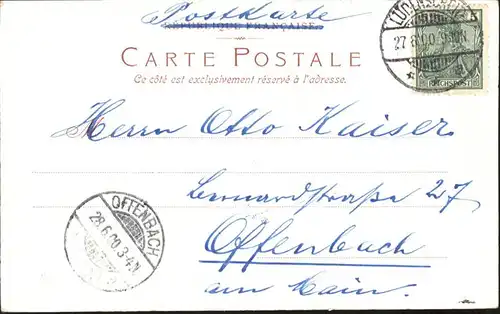 Postkarte
RÉPUBLIQUE FRANÇAISE
CARTE POSTALE
Ce côté est exclusivement réservé à l'adresse.
5
27 6 00
REICHSPOST
Herrn Otto Kaiser
Bernardstraße 27
Offenbach
am Main.
OFFENBACH
28.6.00.3-4N.